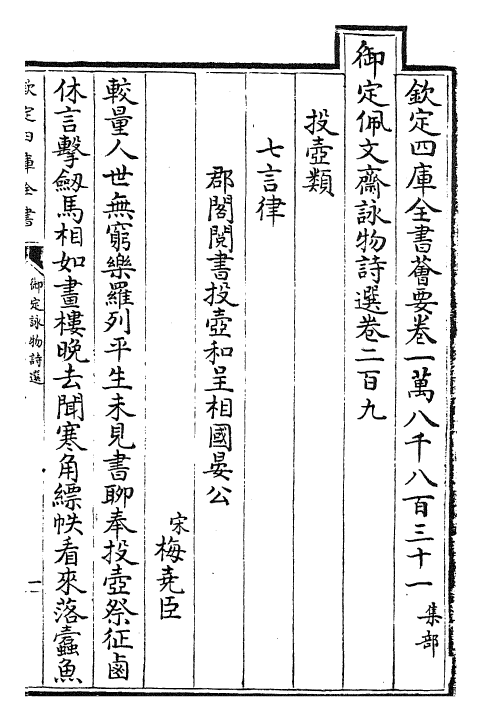 欽定四庫全書薈要卷一萬八千八百三十一 集部
御定佩文齋詠物詩選卷二百九
投壺類
七言律
郡閣閱書投壺和呈相國晏公
宋梅堯臣
較量人世無窮樂羅列平生未見書聊奉投壺祭征鹵
休言擊劒馬相如畫樓晚去聞寒角縹帙看來落蠧魚
欽定四庫全書
御定詠物詩選
一